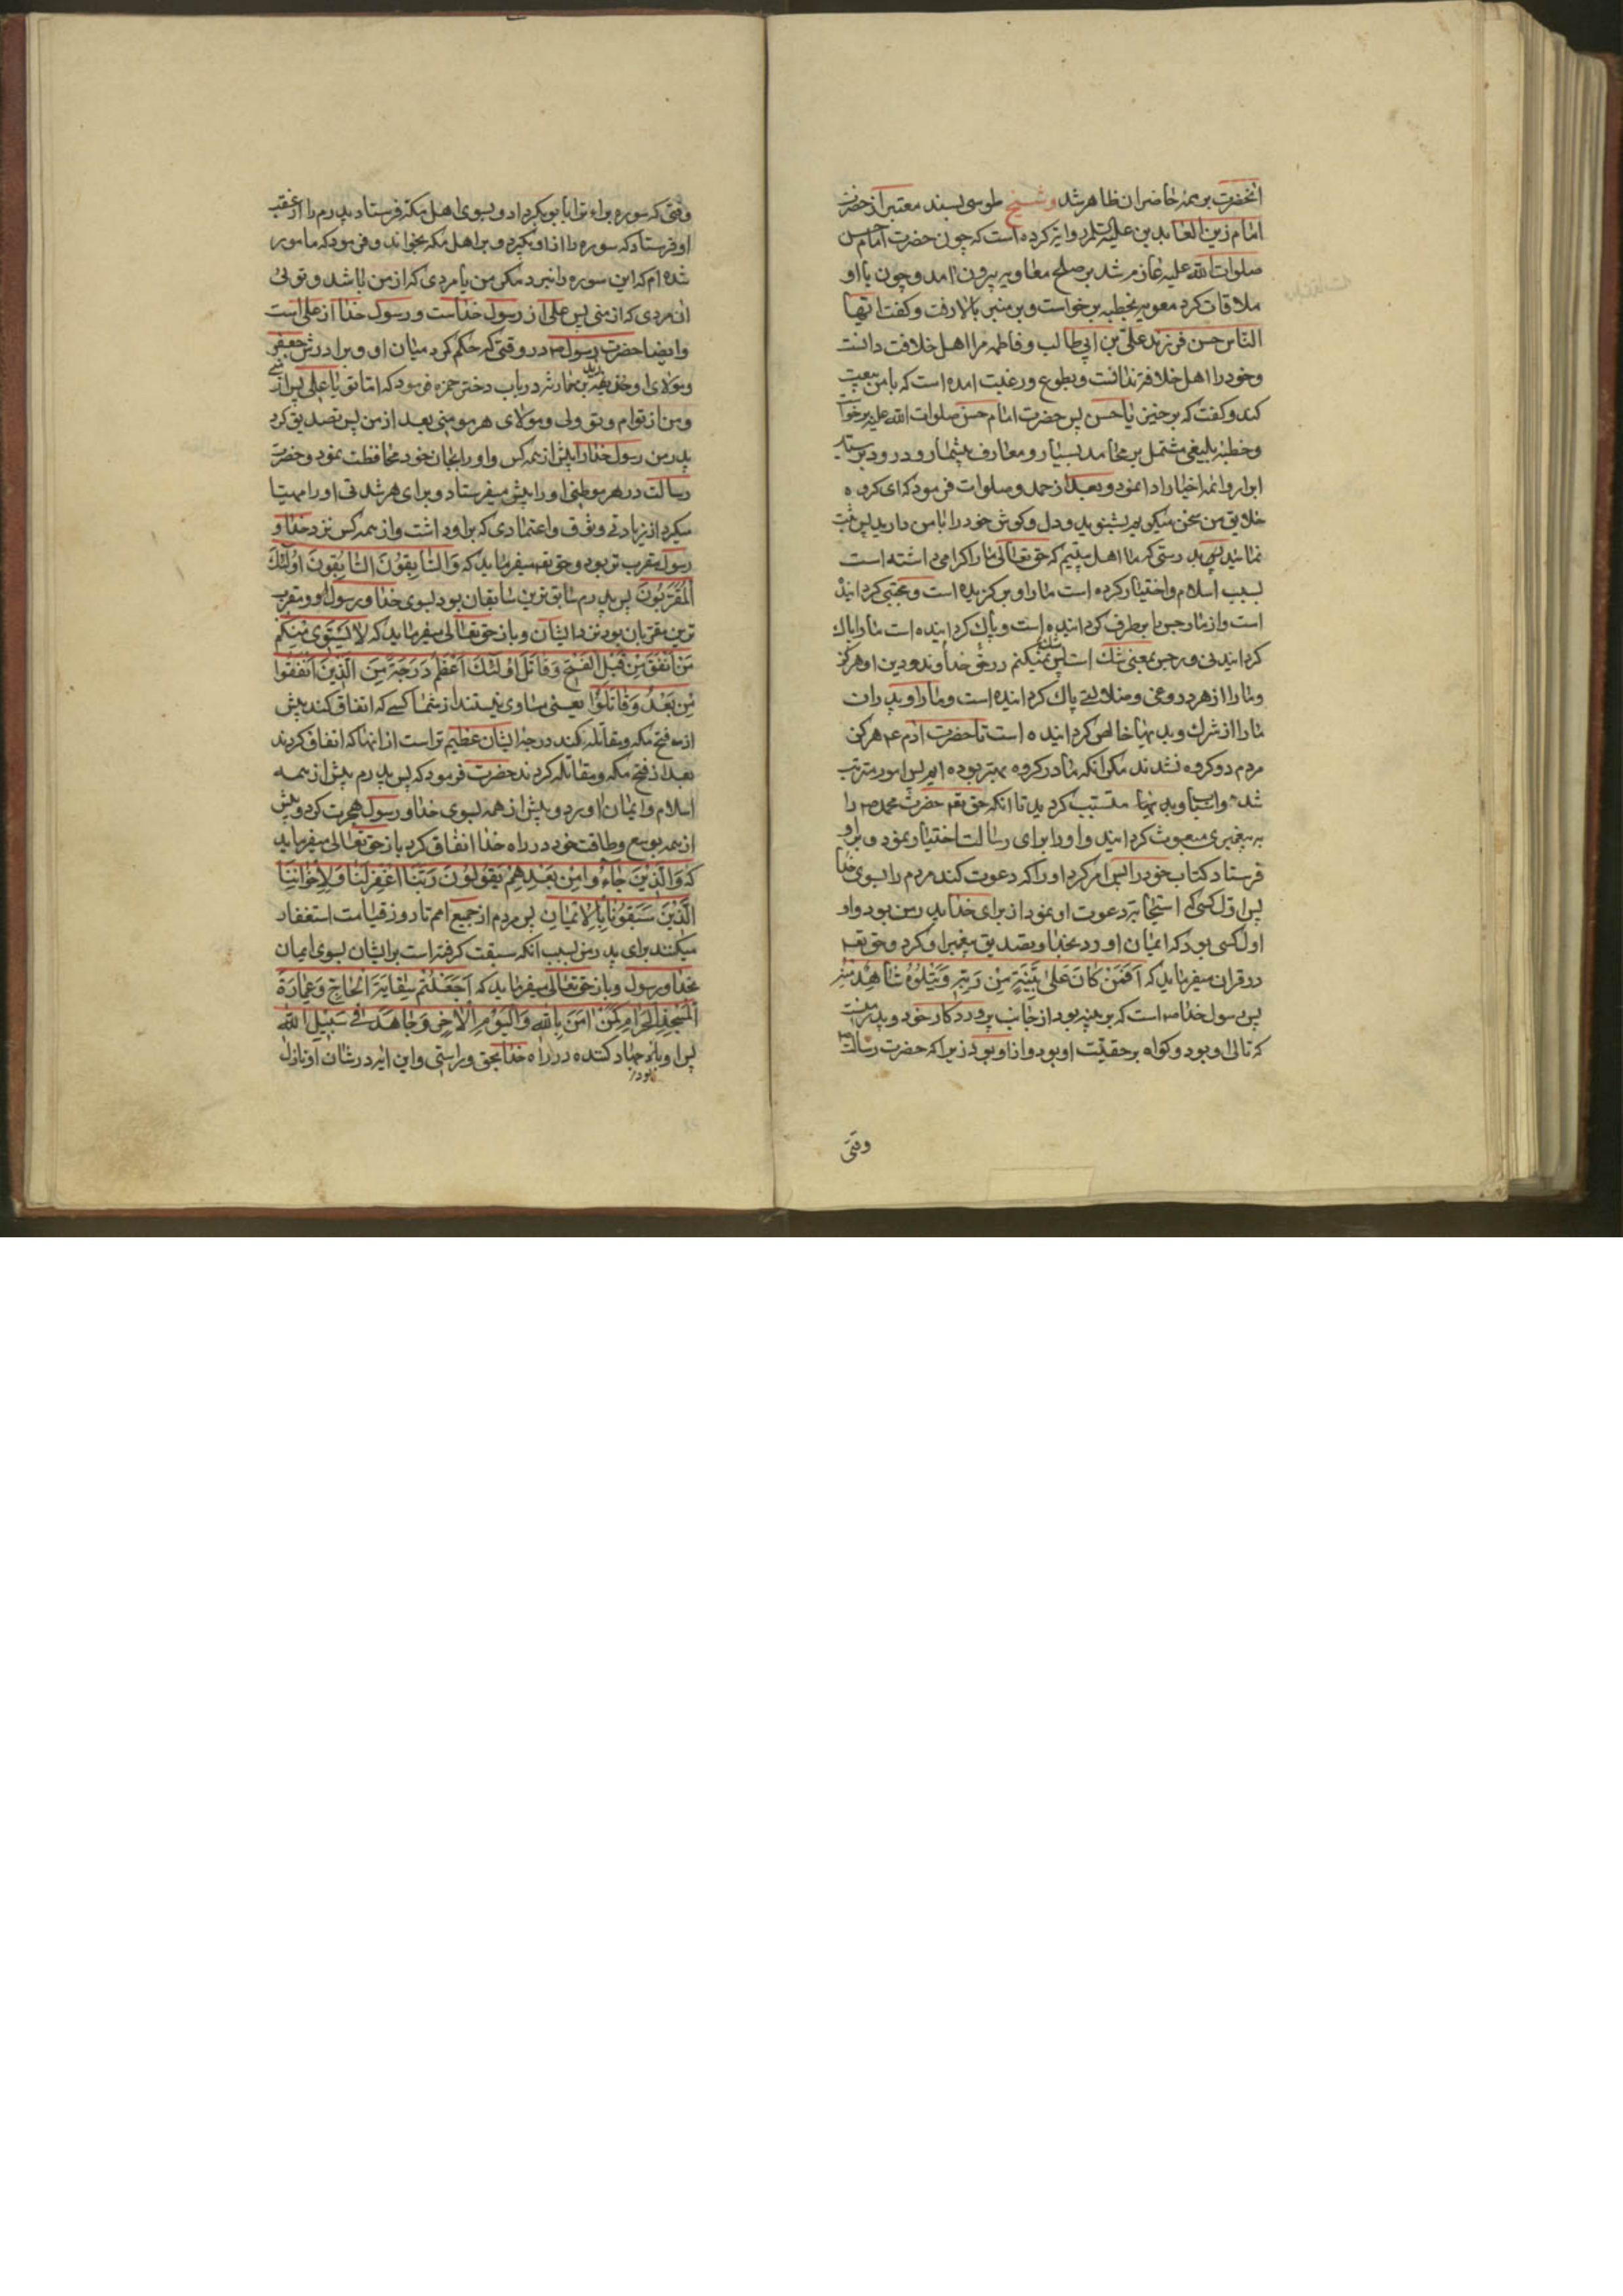 انحضرت بر همه حاضران ظاهر شد و شیخ طوسی بسند معتبر از حضرت
امام زین العابدین علیه السلم روایة کرده است که چون حضرت امام حسن
صلوات الله علیه عازم شد بر صلح معاویه بیرون امد و چون با او
ملاقات کرد معویه بخطبه برخواست و بر منبر بالا رفت و کفت ایها
الناس حسن فرزند علی بن ابی طالب و فاطمه مرا اهل خلافت دانست
و خود را اهل خلافت ندانست و بطوع و رغبت امده است که با من بیعت
کند و کفت که برخیز یا حسن پس حضرت امام حسن صلوات الله علیه برخواست
و خطبه بلیغی مشتمل بر محامد بسیار و معارف بیشمار و درود بر سید
ابرار و ائمه اخیار ادا نمود و بعد از حمد و صلوات فرمود که ای کروه
خلایق من سخن میکویم بشنوید و دل و کوش خود را با من دارید پس
نمائید بدرستی که ما اهل بیتیم که حق تعالی ما را کرامی داشته است
بسبب اسلام و اختیار کرده است ما را و برکزیده است و مجتبی کردانیده
است و از ما رجس را برطرف کردانیده است و پاک کردانیده است ما را پاک
کردانیدنی و رجس بمعنی شک است پس شک نمیکنم در حق خداوند و دین او هرکز
و ما را از هر دروغی و ضلالتی پاک کردانیده است و ما را و پدران
ما را از شرک و بدیها خالص کردانیده است تا حضرت ادم ع هرکز
مردم دو کروه نشدند مکر انکه ما در کروه بهتر بوده ایم پس امور مترتب
شد و اسباب بدیها متسبب کردید تا انکه حق تعه حضرت محمد ص را
به پیغمبری مبعوث کردانید و او را برای رسالت اختیار نمود و بر او
فرستاد کتاب خود را پس امر کرد او را که دعوت کند مردم را بسوی خدا
پس اول کسی که استجابة دعوت او نمود از برای خدا پدر من بود و او
اول کسی بود که ایمان اورد بخدا و تصدیق پیغمبر او کرد و حق تعه
در قران میفرماید که اَفَمَنْ کانَ عَلی بَیِّنَةٍ مِنْ رَبِّهِ وَیَتْلُوهُ شاهِدٌ مِنْهُ
پس رسول خدا ص است که بر بینه بود از جانب پروردکار خود و پدر منست
که تالی او بود و کواه بر حقیت او بود و از او بود زیرا که حضرت رسالت ص
وقتی
وقتی که سوره براءة را با بوبکر داد و بسوی اهل مکه فرستاد پدرم را از عقب
او فرستاد که سوره را از او بکیرد و بر اهل مکه بخواند و فرمود که مامور
شده ام که این سوره را نبرد مکر من یا مردی که از من باشد و تو یی
ان مردی که از منی پس علی از رسول خداست و رسول خدا از علی است
و ایضا حضرت رسول ص در وقتی که حکم کرد میان او و برادرش جعفر
و مولای او زید بن حارثه در باب دختر حمزه فرمود که اما تو یا علی پس از منی
و من از توام و تو ولی و مولای هر مومنی بعد از من پس تصدیق کرد
پدر من رسول خدا را پیش از همه کس و او را بجان خود محافظت نمود و حضرت
رسالت در هر موطنی او را پیش میفرستاد و برای هر شدتی او را مهیا
میکرد از زیادتی وثوق و اعتمادی که بر او داشت و از همه کس نزد خدا و
رسول مقرب تر بود و حق تعه میفرماید که وَالسّابِقُونَ السّابِقُونَ اُولئِکَ
اَلْمُقَرَّبُونَ پس پدرم سابق ترین سابقان بود بسوی خدا و رسول او و مقرب
ترین مقربان بود نزد ایشان و باز حق تعالی میفرماید که لا یَسْتَوی مِنْکُمْ
مَنْ اَنْفَقَ مِنْ قَبْلِ الْفَتْحِ وَقاتَلَ اُولئِکَ اَعْظَمُ دَرَجَةً مِنَ الَّذینَ اَنْفَقُوا
مِنْ بَعْدُ وَقاتَلُوا یعنی مساوی نیستند از شما کسی که انفاق کند پیش
از فتح مکه و مقاتله کند درجه ایشان عظیم تر است از انها که انفاق کردند
بعد از فتح مکه و مقاتله کردند حضرت فرمود که پس پدرم پیش از همه
اسلام و ایمان اورد و پیش از همه بسوی خدا و رسول هجرت کرد و پیش
از همه بوسع و طاقت خود در راه خدا انفاق کرد باز حق تعالی میفرماید
که وَالَّذینَ جاءُوا مِنْ بَعْدِهِمْ یَقُولُونَ رَبَّنَا اغْفِرْ لَنا وَلِاِخْوانِنَا
الَّذینَ سَبَقُونا بِالْاِیمانِ پس مردم از جمیع امم تا روز قیامت استغفار
میکنند برای پدر من بسبب انکه سبقت کرفته است بر ایشان بسوی ایمان
بخدا و رسول و باز حق تعالی میفرماید که اَجَعَلْتُمْ سِقایَةَ الْحاجِّ وَعِمارَةَ
الْمَسْجِدِ الْحَرامِ کَمَنْ امَنَ بِاللهِ وَالْیَوْمِ الْاخِرِ وَجاهَدَ فی سَبیلِ اللهِ
پس او بود جهاد کننده در راه خدا بحق و راستی و این ایه در شان او نازل